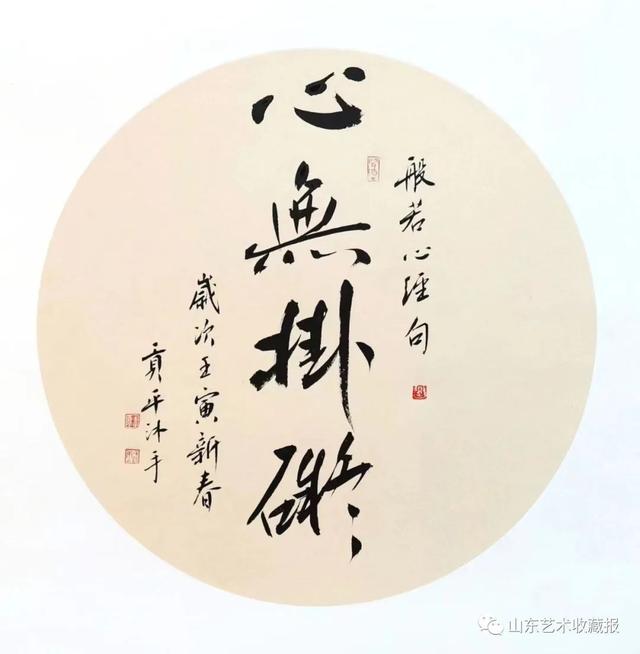 般若心經句
心無掛礙
歲次壬寅新春
貢平沐手
山东艺术收藏报